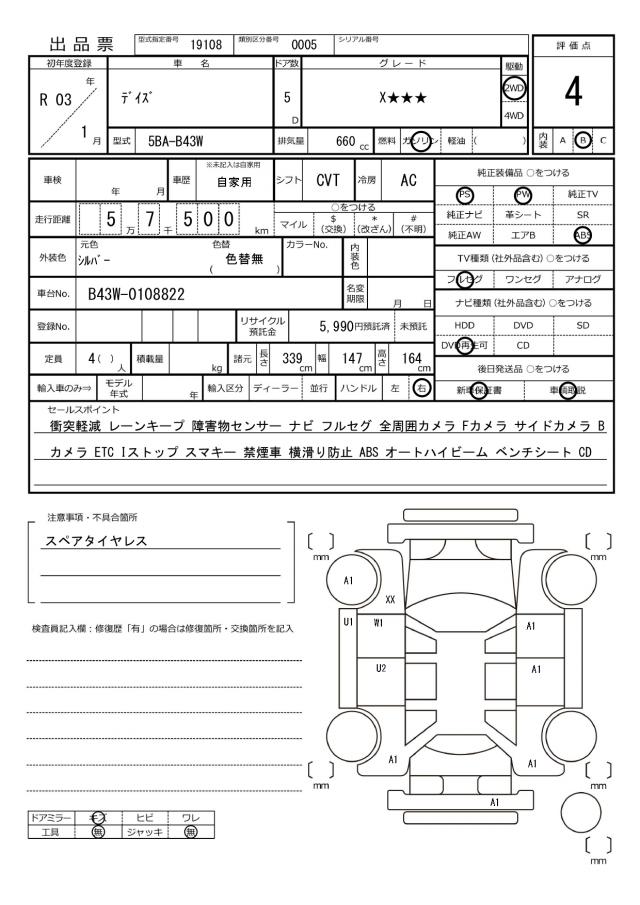 出品票 型式指定番号 19108 類別区分番号 0005 シリアル番号
評価点
4
内装 A B C
初年度登録 車名 ドア数 グレード 駆動
R 03 年 1 月 デイズ 5 D X★★★ 2WD 4WD
型式 5BA-B43W 排気量 660 cc 燃料 ガソリン 軽油 ( )
車検 年 月 車歴 ※未記入は自家用 自家用 シフト CVT 冷房 AC
走行距離 5 万 7 千 5 0 0 km
○をつける
マイル $(交換) *(改ざん) #(不明)
外装色 元色 シルバー 色替 ( 色替無 ) カラーNo. 内装色
車台No. B43W-0108822 名変期限 月 日
登録No. リサイクル預託金 5,990円預託済 未預託
定員 4 ( ) 人 積載量 kg 諸元 長さ 339 cm 幅 147 cm 高さ 164 cm
輸入車のみ⇒ モデル年式 年 輸入区分 ディーラー 並行 ハンドル 左 右
純正装備品 ○をつける
PS PW 純正TV
純正ナビ 革シート SR
純正AW エアB ABS
TV種類(社外品含む)○をつける
フルセグ ワンセグ アナログ
ナビ種類(社外品含む)○をつける
HDD DVD SD
DVD再生可 CD
後日発送品 ○をつける
新車保証書 車輌取説
セールスポイント
衝突軽減 レーンキープ 障害物センサー ナビ フルセグ 全周囲カメラ Fカメラ サイドカメラ B
カメラ ETC Iストップ スマキー 禁煙車 横滑り防止 ABS オートハイビーム ベンチシート CD
注意事項・不具合箇所
スペアタイヤレス
検査員記入欄：修復歴「有」の場合は修復箇所・交換箇所を記入
ドアミラー キズ ヒビ ワレ
工具 無 ジャッキ 無
[ ] mm
[ ] mm
A1
XX
U1 W1
A1
U2
A1
A1
A1
[ ] mm
[ ] mm
A1
[ ] mm